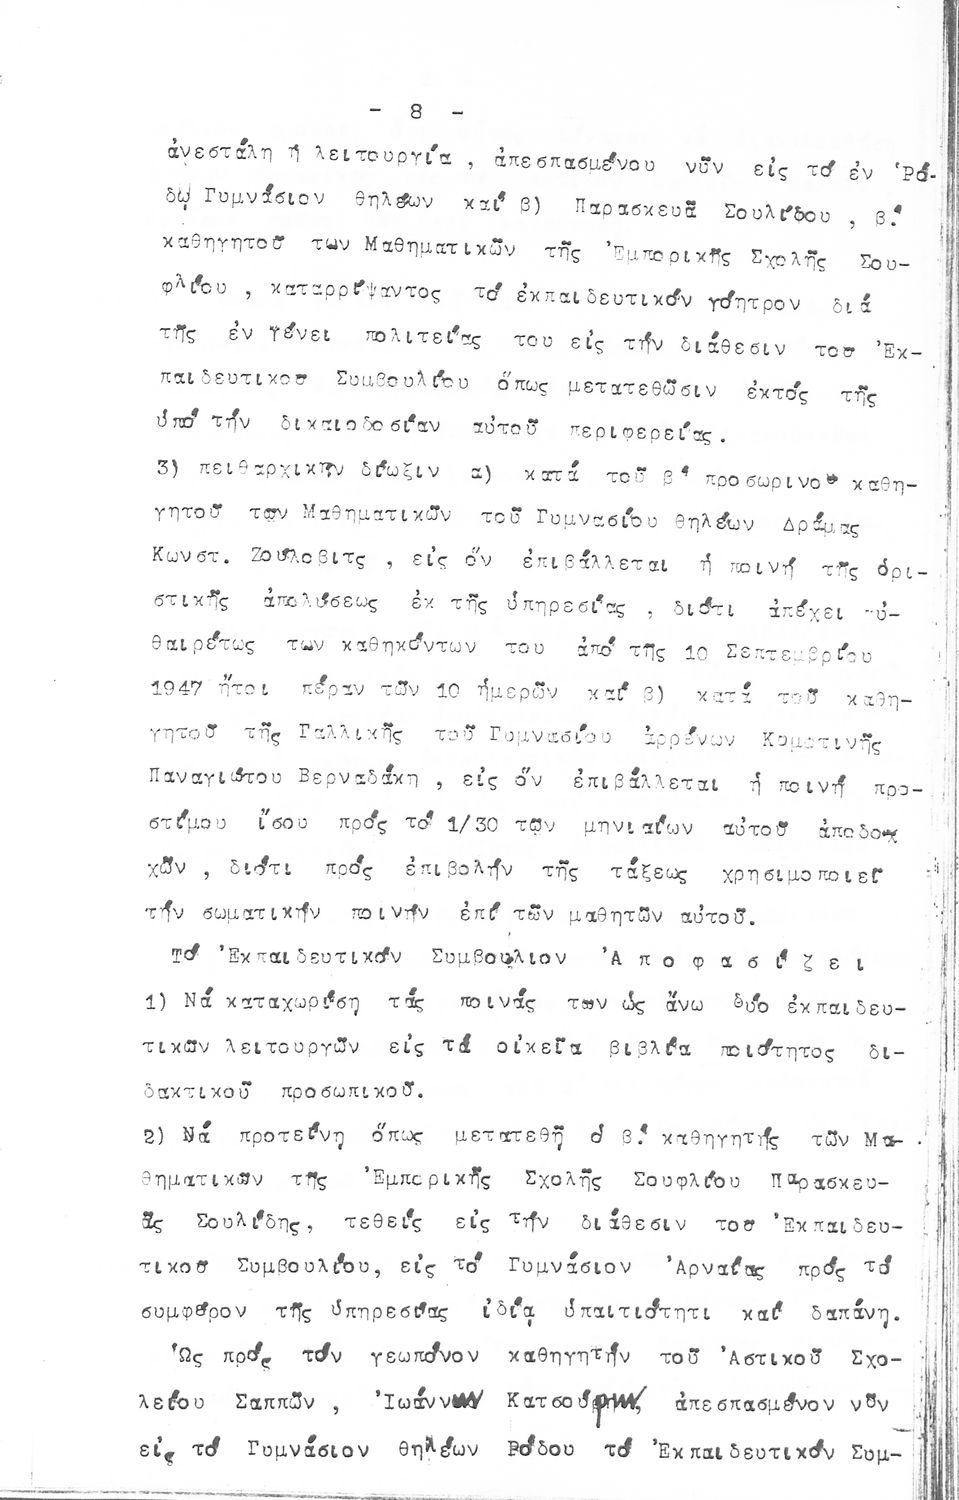 - 8 -
ἀνεστάλη ἡ λειτουργία , ἀπεσπασμένου νῦν εἰς τό ἐν Ῥό-
δῳ Γυμνάσιον θηλέων καί β) Παρασκευᾶ Σουλίδου , β.'
καθηγητοῦ των Μαθηματικῶν τῆς Ἐμπορικῆς Σχολῆς Σου-
φλίου , καταρρίψαντος τό ἐκπαιδευτικόν γόητρον διά
τῆς ἐν γένει πολιτείας του εἰς τήν διάθεσιν τοῦ Ἐκ-
παιδευτικοῦ Συμβουλίου ὅπως μετατεθῶσιν ἐκτός τῆς
ὑπό τήν δικαιοδοσίαν αὐτοῦ περιφερείας.
3) πειθαρχικήν δίωξιν α) κατά τοῦ β' προσωρινοῦ καθη-
γητοῦ τῶν Μαθηματικῶν τοῦ Γυμνασίου θηλέων Δράμας
Κωνστ. Ζούλοβιτς , εἰς ὅν ἐπιβάλλεται ἡ ποινή τῆς ὁρι-
στικῆς ἀπολύσεως ἐκ τῆς ὑπηρεσίας , διότι ἀπέχει αὐ-
θαιρέτως των καθηκόντων του ἀπό τῆς 10 Σεπτεμβρίου
1947 ἤτοι πέραν τῶν 10 ἡμερῶν καί β) κατά τοῦ καθη-
γητοῦ τῆς Γαλλικῆς τοῦ Γυμνασίου ἀρρένων Κομοτινῆς
Παναγιώτου Βερναδάκη , εἰς ὅν ἐπιβάλλεται ἡ ποινή προ-
στίμου ἴσου πρός τό 1/30 τῶν μηνιαίων αὐτοῦ ἀποδο-
χῶν , διότι πρός ἐπιβολήν τῆς τάξεως χρησιμοποιεῖ
τήν σωματικήν ποινήν ἐπί τῶν μαθητῶν αὐτοῦ.
Τό Ἐκπαιδευτικόν Συμβούλιον Ἀ π ο φ α σ ί ζ ε ι
1) Νά καταχωρίση τάς ποινάς των ὡς ἄνω δυο ἐκπαιδευ-
τικῶν λειτουργῶν εἰς τά οἰκεῖα βιβλία ποιότητος δι-
δακτικοῦ προσωπικοῦ.
2) Νά προτείνη ὅπως μετατεθῇ ὁ β.' καθηγητής τῶν Μα-
θηματικῶν τῆς Ἐμπορικῆς Σχολῆς Σουφλίου Παρασκευ-
ᾶς Σουλίδης, τεθείς εἰς τήν διάθεσιν τοῦ Ἐκπαιδευ-
τικοῦ Συμβουλίου, εἰς τό Γυμνάσιον Ἀρναίας πρός τό
συμφέρον τῆς ὑπηρεσίας ἰδίᾳ ὑπαιτιότητι καί δαπάνη.
Ὡς πρός τόν γεωπόνον καθηγητήν τοῦ Ἀστικοῦ Σχο-
λείου Σαππῶν , Ἰωάννην Κατσούρην, ἀπεσπασμένον νῦν
εἰς τό Γυμνάσιον θηλέων Ρόδου τό Ἐκπαιδευτικόν Συμ-